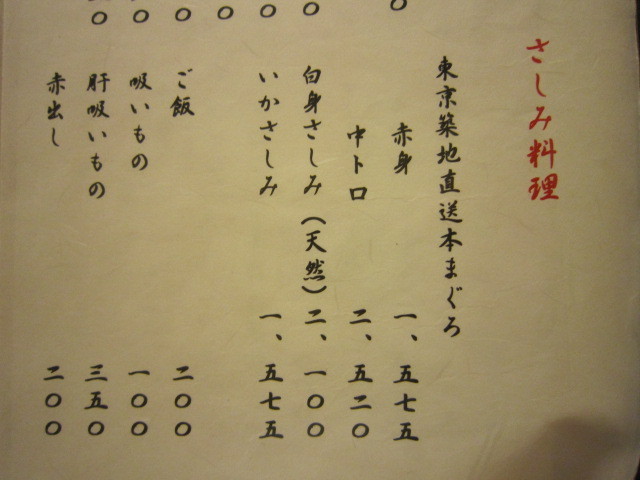 さしみ料理
東京築地直送本まぐろ
赤身 一、五七五
中トロ 二、五二〇
白身さしみ(天然) 二、一〇〇
いかさしみ 一、五七五
ご飯 二〇〇
吸いもの 一〇〇
肝吸いもの 三五〇
赤出し 二〇〇